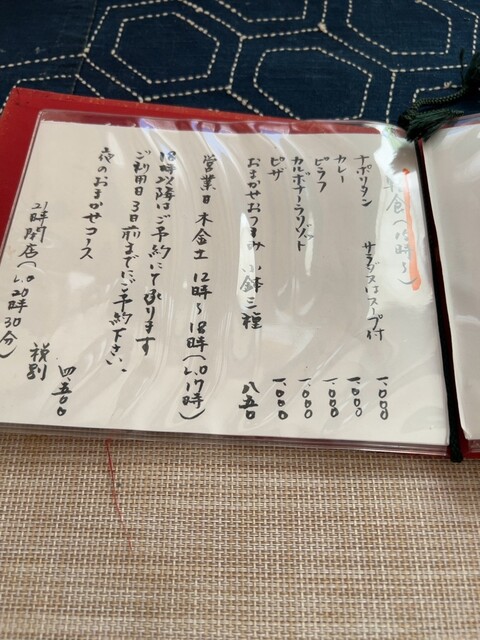 食(15時〜)
ナポリタン サラダ又はスープ付 一、〇〇〇
カレー 一、〇〇〇
ピラフ 一、〇〇〇
カルボナーラリゾット 一、〇〇〇
ピザ 一、〇〇〇
おまかせおつまみ 小鉢三種 八五〇
営業日 木金土 12時〜18時(L.O 17時)
18時以降はご予約にて承ります
ご利用日3日前までにご予約下さい。
夜のおまかせコース 四、五〇〇
税別
21時閉店(L.O 20時30分)